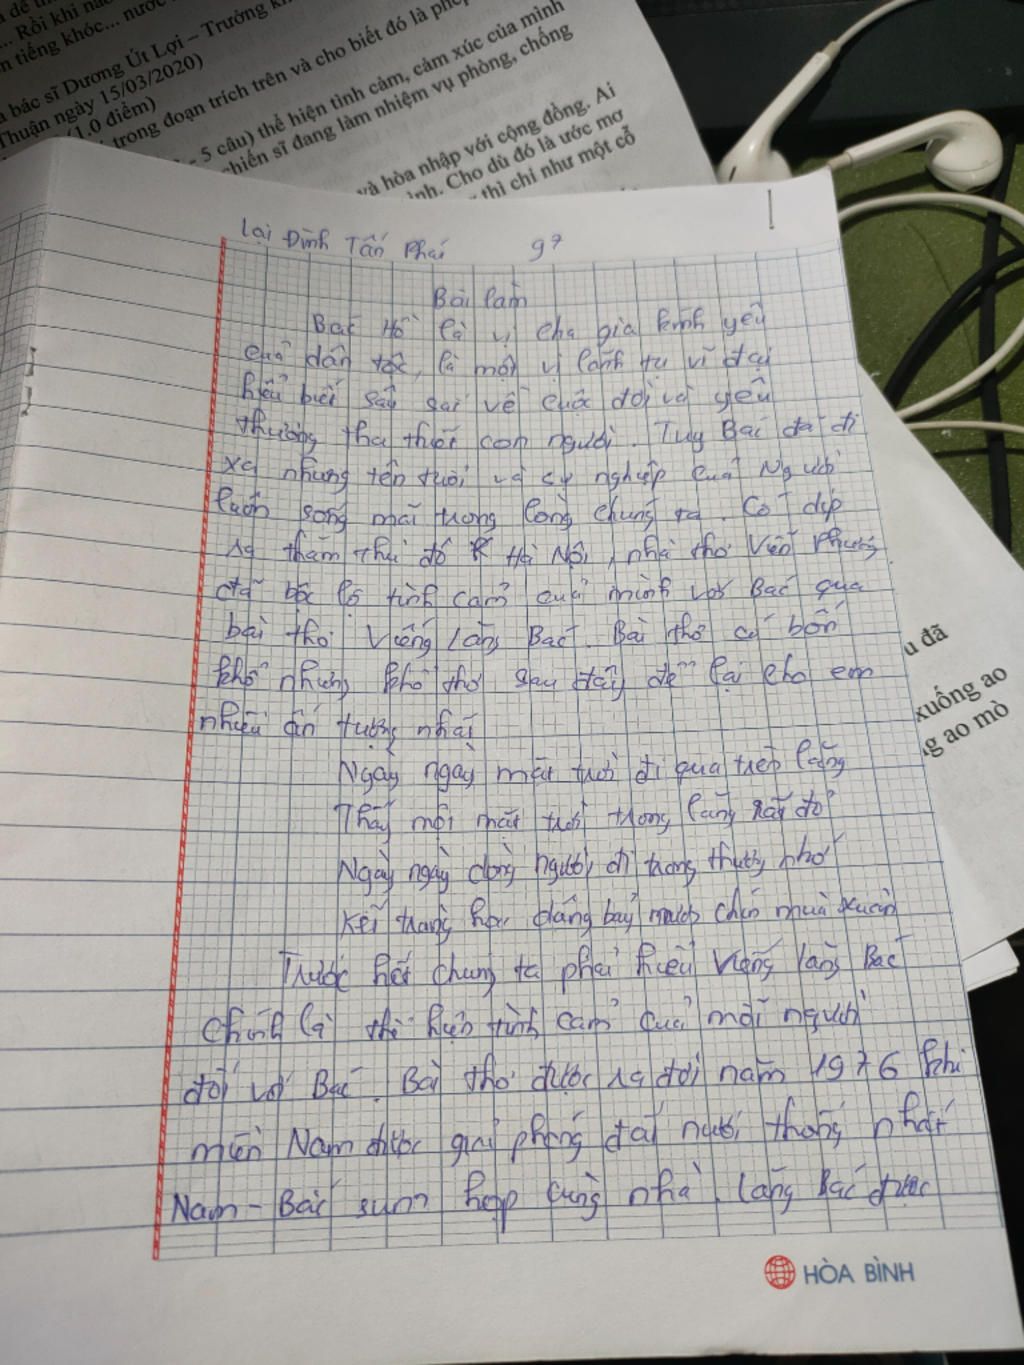 ... Rồi khi
n tiếng khóc... nước
a bác sĩ Dương Út Lợi – Trưởng
Thuận ngày 15/03/2020)
(1,0 điểm)
trong đoạn trích trên và cho biết đó là
- 5 câu) thể hiện tình cảm, cảm xúc của mình
chiến sĩ đang làm nhiệm vụ phòng, chống
và hòa nhập với cộng đồng. Ai
Cho dù đó là ước mơ
thì chỉ như một cỗ
Lại Đình Tấn Phái 9⁷
Bài làm
Bác Hồ là vị cha già kính yêu
của dân tộc, là một vị lãnh tụ vĩ đại
hiểu biết sâu sắc về cuộc đời và yêu
thương tha thiết con người. Tuy Bác đã đi
xa nhưng tên tuổi và sự nghiệp của Người
luôn sống mãi trong lòng chúng ta. Có dịp
ra thăm thủ đô Hà Nội, nhà thơ Viễn Phương
đã bộc lộ tình cảm của mình với Bác qua
bài thơ Viếng Lăng Bác. Bài thơ có bốn
khổ nhưng khổ thơ sau đây để lại cho em
nhiều ấn tượng nhất
Ngày ngày mặt trời đi qua trên lăng
Thấy một mặt trời trong lăng rất đỏ
Ngày ngày dòng người đi trong thương nhớ
Kết tràng hoa dâng bảy mươi chín mùa xuân
Trước hết chúng ta phải hiểu Viếng lăng Bác
chính là thể hiện tình cảm của mỗi người
đối với Bác. Bài thơ được ra đời năm 1976 khi
miền Nam được giải phóng đất nước thống nhất
Nam - Bắc sum họp cùng nhà. Lăng Bác được
u đã
xuống ao
ng ao mò
HÒA BÌNH